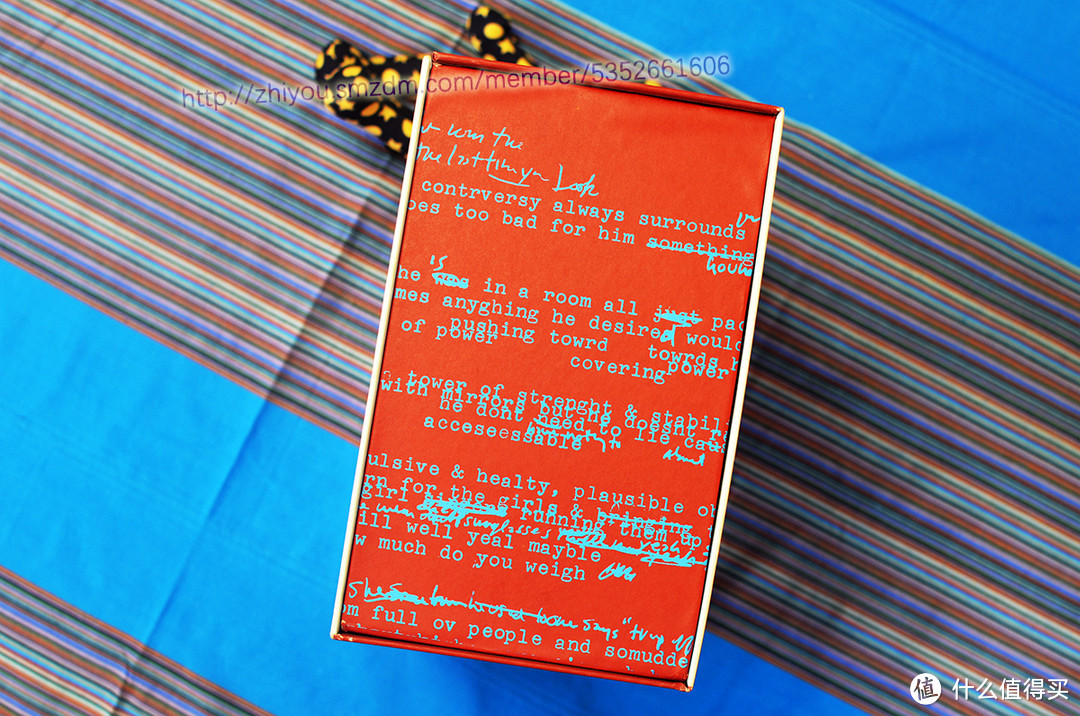 http://zhiyou.smzdm.com/member/5352661606
the
the last time you Look
contrversy always surrounds
oes too bad for him something
is
he was in a room all just pac
mes anyghing he desired would
pushing towrd towrds h
of power
covering power
a tower of strenght & stabil
with mirrors but he doesnt re
he dont need to lie
acceseessable
about
ulsive & healty, plausible o
rn for the girls & bringing
girl running them up
sunglasses yeah
ill well yeal mayble
w much do you weigh
She says "try
om full ov people and somudde
值 什么值得买